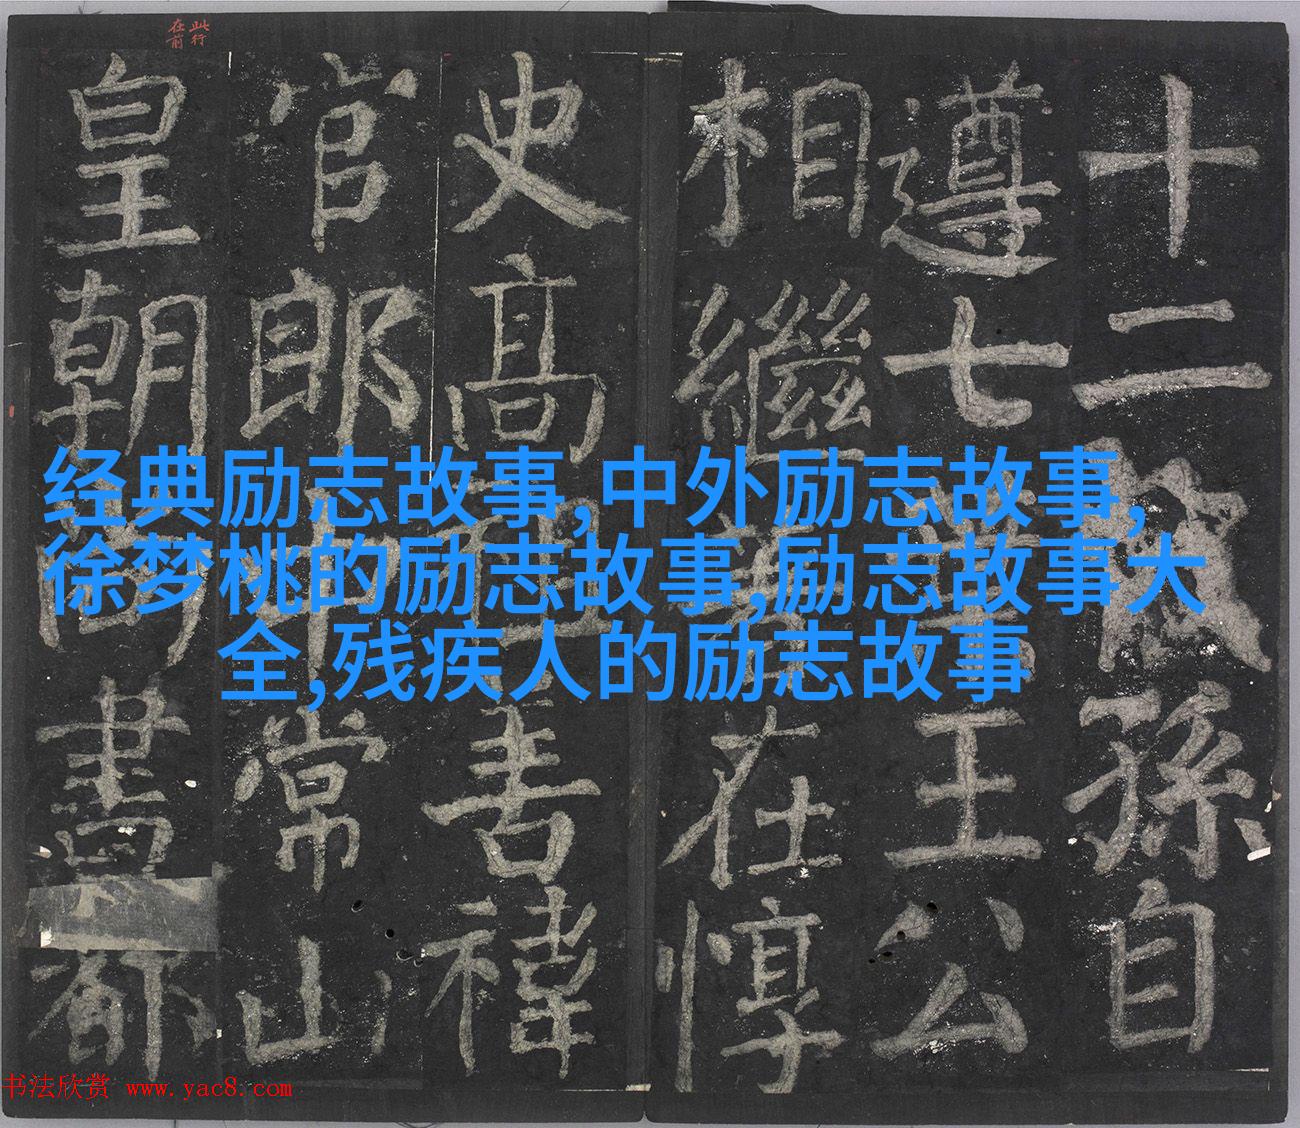 此行
在前
十二孫自
遵七王公
相繼在惇
史高善褘
官郎中常山
皇朝尚書都
经典励志故事,中外励志故事,
徐梦桃的励志故事,励志故事大
全,残疾人的励志故事
书法欣赏 www.yac8.com